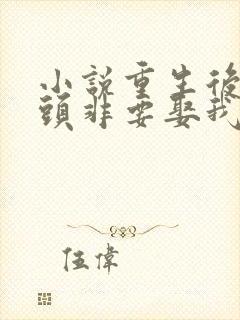 小說重生後
頭非要娶我
伍偉